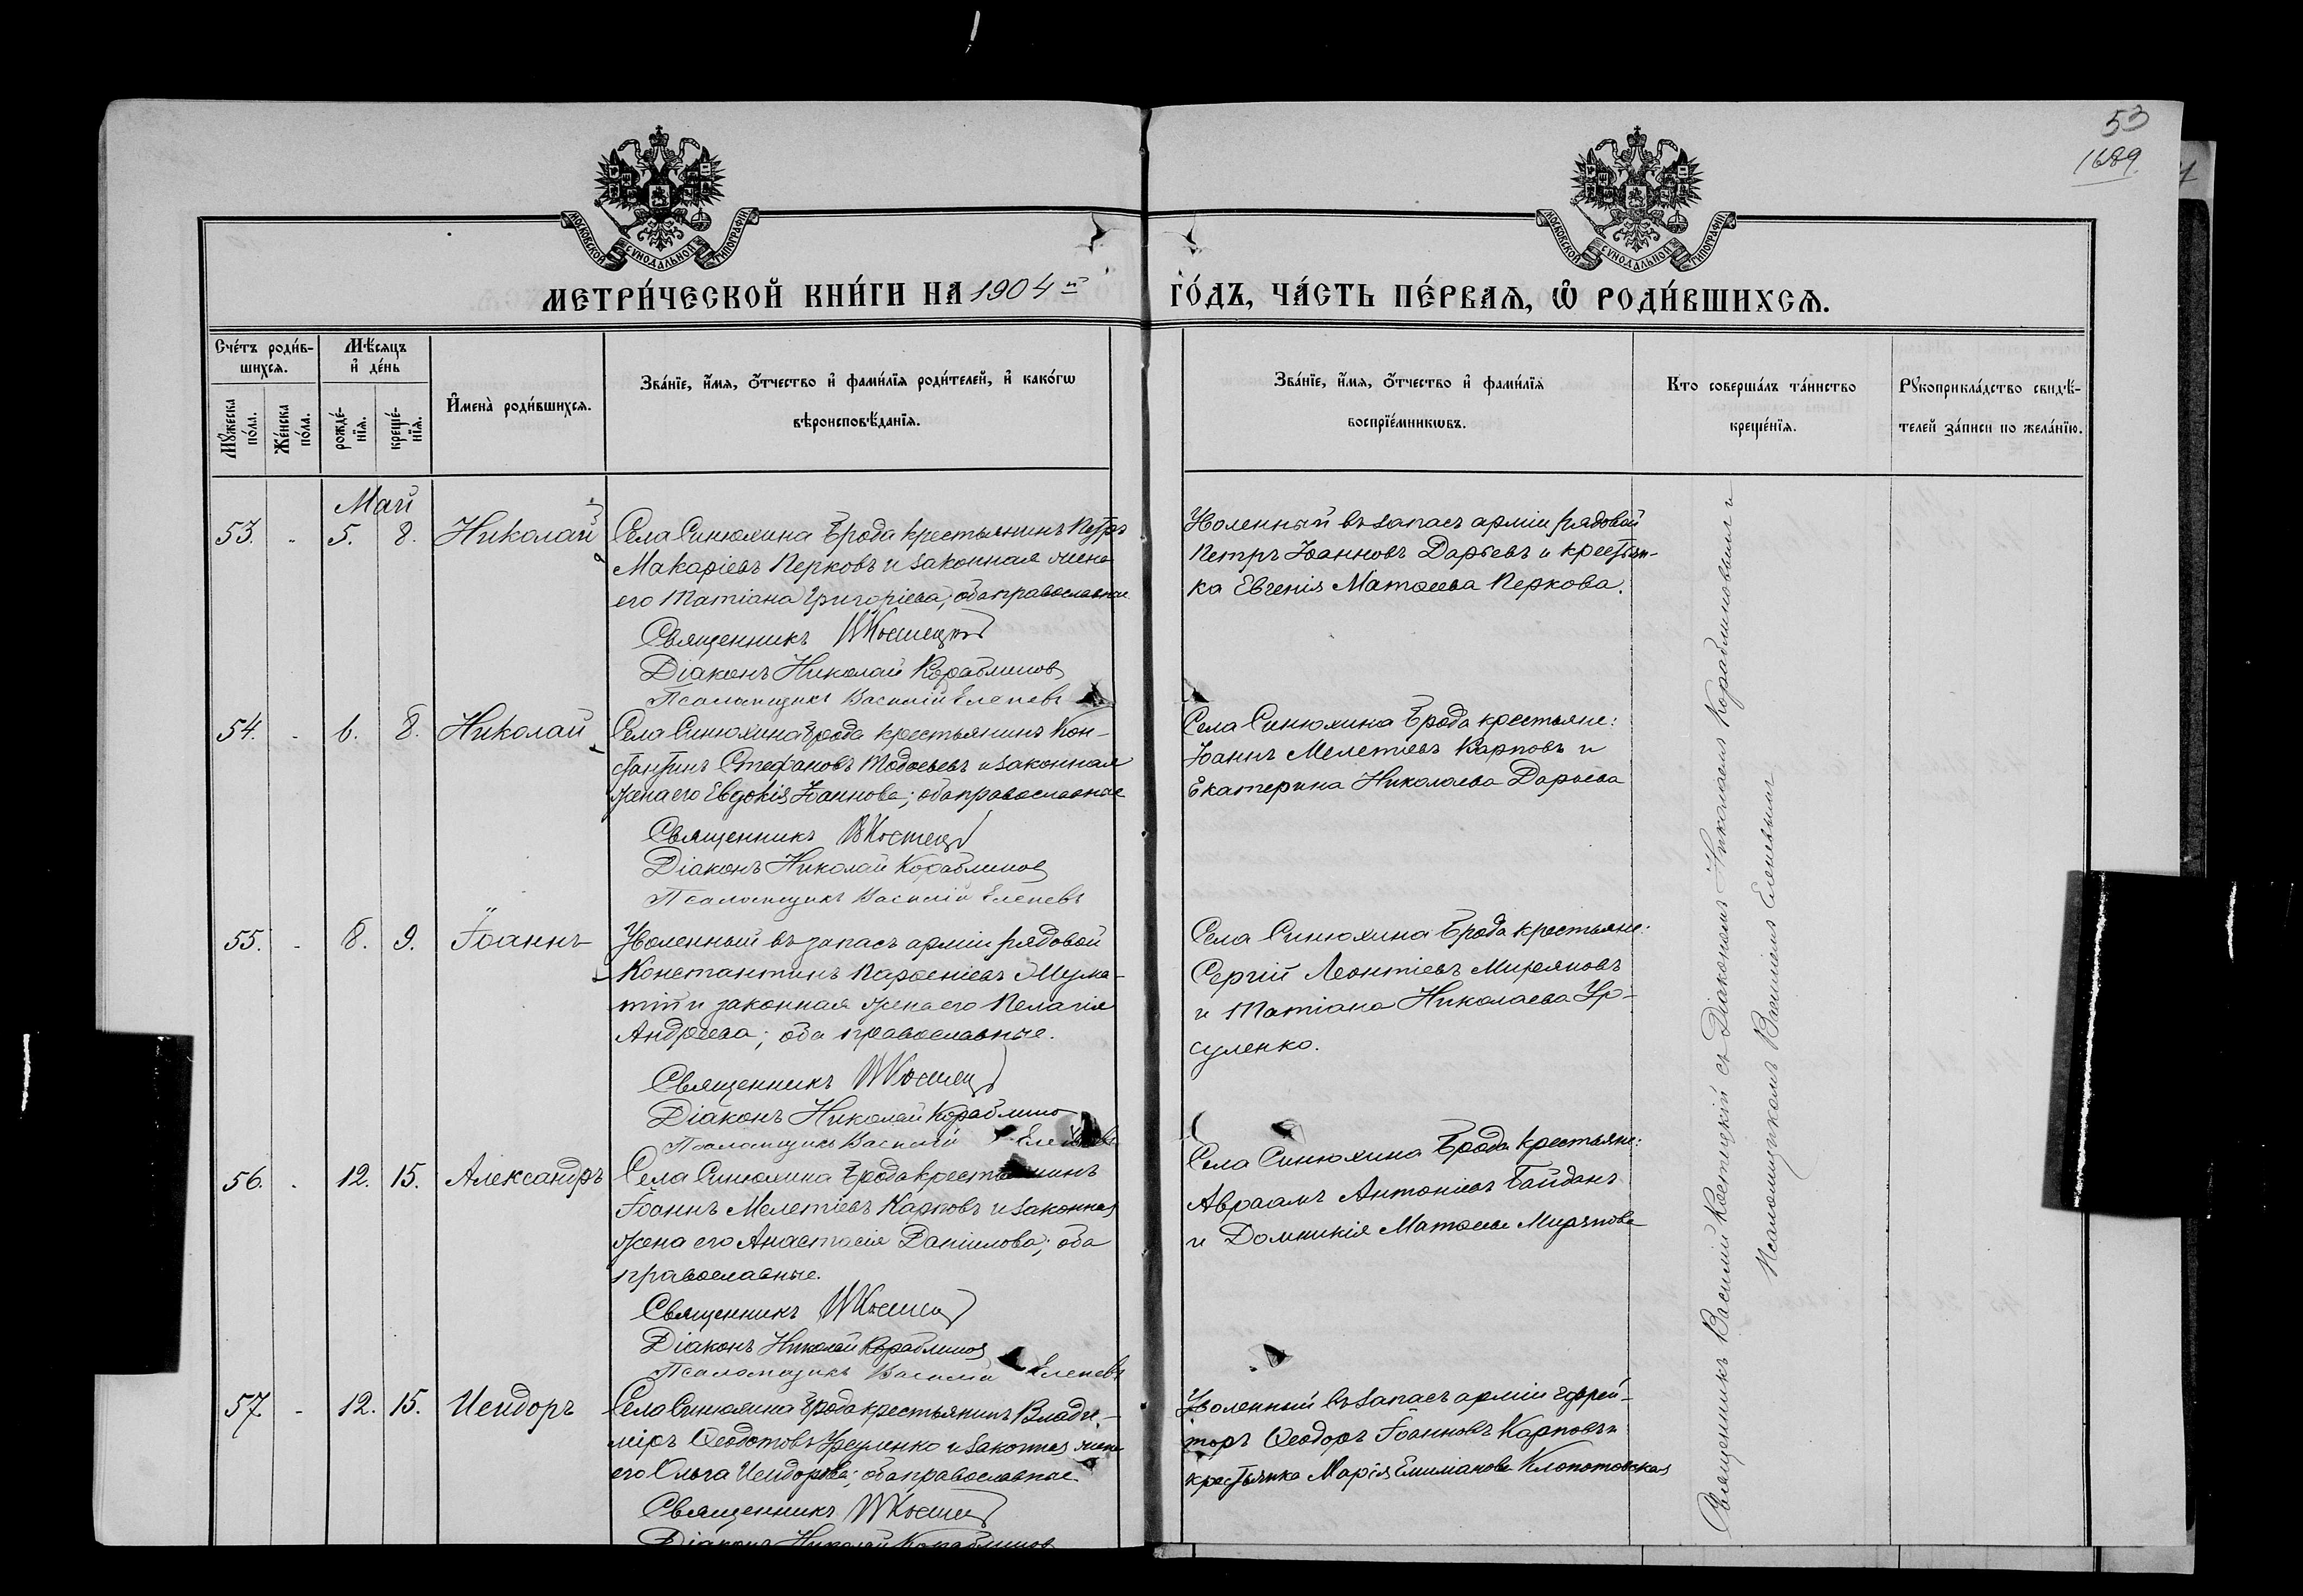 53
1689.
МОСКОВСКОЙ СѴНОДАЛЬНОЙ ТИПОГРАФІИ
МОСКОВСКОЙ СѴНОДАЛЬНОЙ ТИПОГРАФІИ
МЕТРИ́ЧЕСКОЙ КНИ́ГИ НА 1904 й
ГО́ДЪ, ЧА́СТЬ ПЕ́РВАѦ, Ѽ РОДИ́ВШИХСѦ.
Сче́тъ роди́в-
шихсѧ.
Мѣ́сѧцъ
и҆ де́нь
Мꙋ́жеска по́ла.
Же́нска по́ла.
рожде́-
нїѧ.
креще́-
нїѧ.
И҆мена̀ роди́вшихсѧ.
Зва́нїе, и҆́мѧ, ѻ҆́тчество и҆ фами́лїѧ роди́телей, и҆ како́гѡ
вѣроисповѣ́данїѧ.
Зва́нїе, и҆́мѧ, ѻ҆́тчество и҆ фами́лїѧ
воспрїе́мникѡвъ.
Кто соверша́лъ та́инство
креще́нїѧ.
Рꙋкоприкла́дство свидѣ́-
телей за́писи по жела́нїю.
Май
53. - 5. 8. Николай
Села Синюхина Брода крестьянинъ Петръ
Макаріевъ Перковъ и законная жена
его Татіана Григоріева; оба православные
Священникъ В Костецкій
Діаконъ Николай Кораблиновъ
Псаломщикъ Василій Еленевъ
Уволенный въ запасъ арміи рядовой
Петръ Іоанновъ Дарьевъ и крестьян-
ка Евгенія Матѳеева Перкова.
54. - 6. 8. Николай
Села Синюхина Брода крестьянинъ Кон-
стантинъ Стефановъ и законная
жена его Евдокія Іоаннова; оба православные
Священникъ В Костецкій
Діаконъ Николай Кораблиновъ
Псаломщикъ Василій Еленевъ
Села Синюхина Брода крестьяне:
Іоаннъ Мелетіевъ Карповъ и
Екатерина Николаева Дарьева
55. - 8. 9. Іоаннъ
Уволенный въ запасъ арміи рядовой
Константинъ Парѳеніевъ
и законная жена его Пелагія
Андреева; оба православные.
Священникъ В Костецкій
Діаконъ Николай Кораблиновъ
Псаломщикъ Василій Еленевъ
Села Синюхина Брода крестьяне:
Сергій Леонтіевъ Миреяновъ
и Татіана Николаева Ур-
суленко.
56. - 12. 15. Александръ
Села Синюхина Брода крестьянинъ
Іоаннъ Мелетіевъ Карповъ и законная
жена его Анастасія Даніилова; оба
православные.
Священникъ В Костецкій
Діаконъ Николай Кораблиновъ
Псаломщикъ Василій Еленевъ
Села Синюхина Брода крестьяне:
Авраамъ Антоніевъ Байданъ
и Домникія Матѳеева
57 - 12. 15. Исидоръ
Села Синюхина Брода крестьянинъ Влади-
міръ Ѳеодотовъ Урсуленко и законная жена
его Ольга Исидорова; оба православные
Священникъ В Костецкій
Діаконъ Николай Кораблиновъ
Уволенный въ запасъ арміи ефрей-
торъ Ѳеодоръ Іоанновъ Карповъ и
крестьянка Марія Емиліанова Клопотовская
Священникъ Василій Костецкій съ Діакономъ Николаемъ Кораблиновымъ и
Псаломщикомъ Василіемъ Еленевымъ